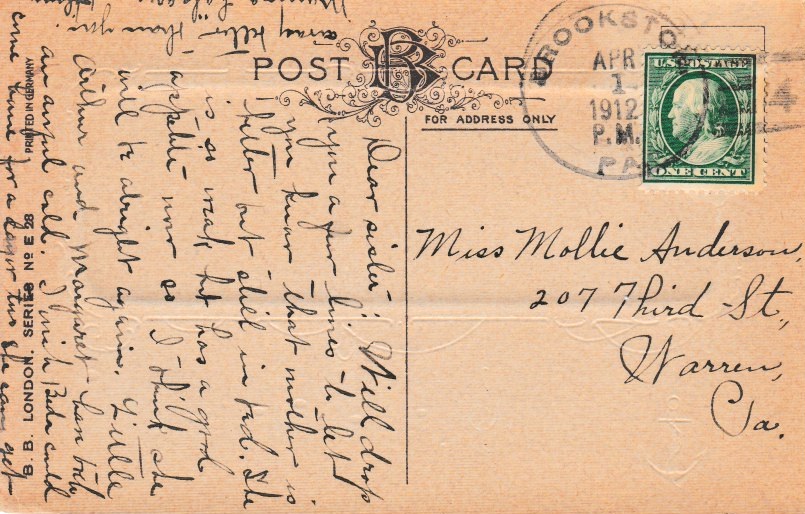 POST CARD
BB
FOR ADDRESS ONLY
BROOKSTON
APR
1
1912
P.M.
PA
U.S. POSTAGE
ONE CENT
4
Miss Mollie Anderson,
207 Third St,
Warren,
Pa.
Dear sister: Will drop
you a few lines to let
you know that mother is
better but still in bed. She
is so weak but has a good
appetite now so I think she
will be alright again. Little
Arthur and Margaret has both
an awful cold. I wish Beda could
come home for a day or two she can get
away
than you.
B. B. LONDON. SERIES No E 28 PRINTED IN GERMANY